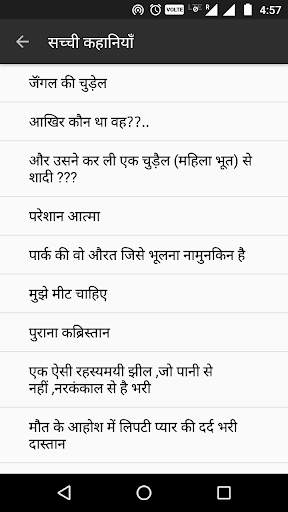 VOLTE LTE R 4:57
सच्ची कहानियाँ
जॅंगल की चुड़ेल
आखिर कौन था वह??..
और उसने कर ली एक चुड़ैल (महिला भूत) से
शादी ???
परेशान आत्मा
पार्क की वो औरत जिसे भूलना नामुनकिन है
मुझे मीट चाहिए
पुराना कब्रिस्तान
एक ऐसी रहस्यमयी झील ,जो पानी से
नहीं ,नरकंकाल से है भरी
मौत के आहोश में लिपटी प्यार की दर्द भरी
दास्तान